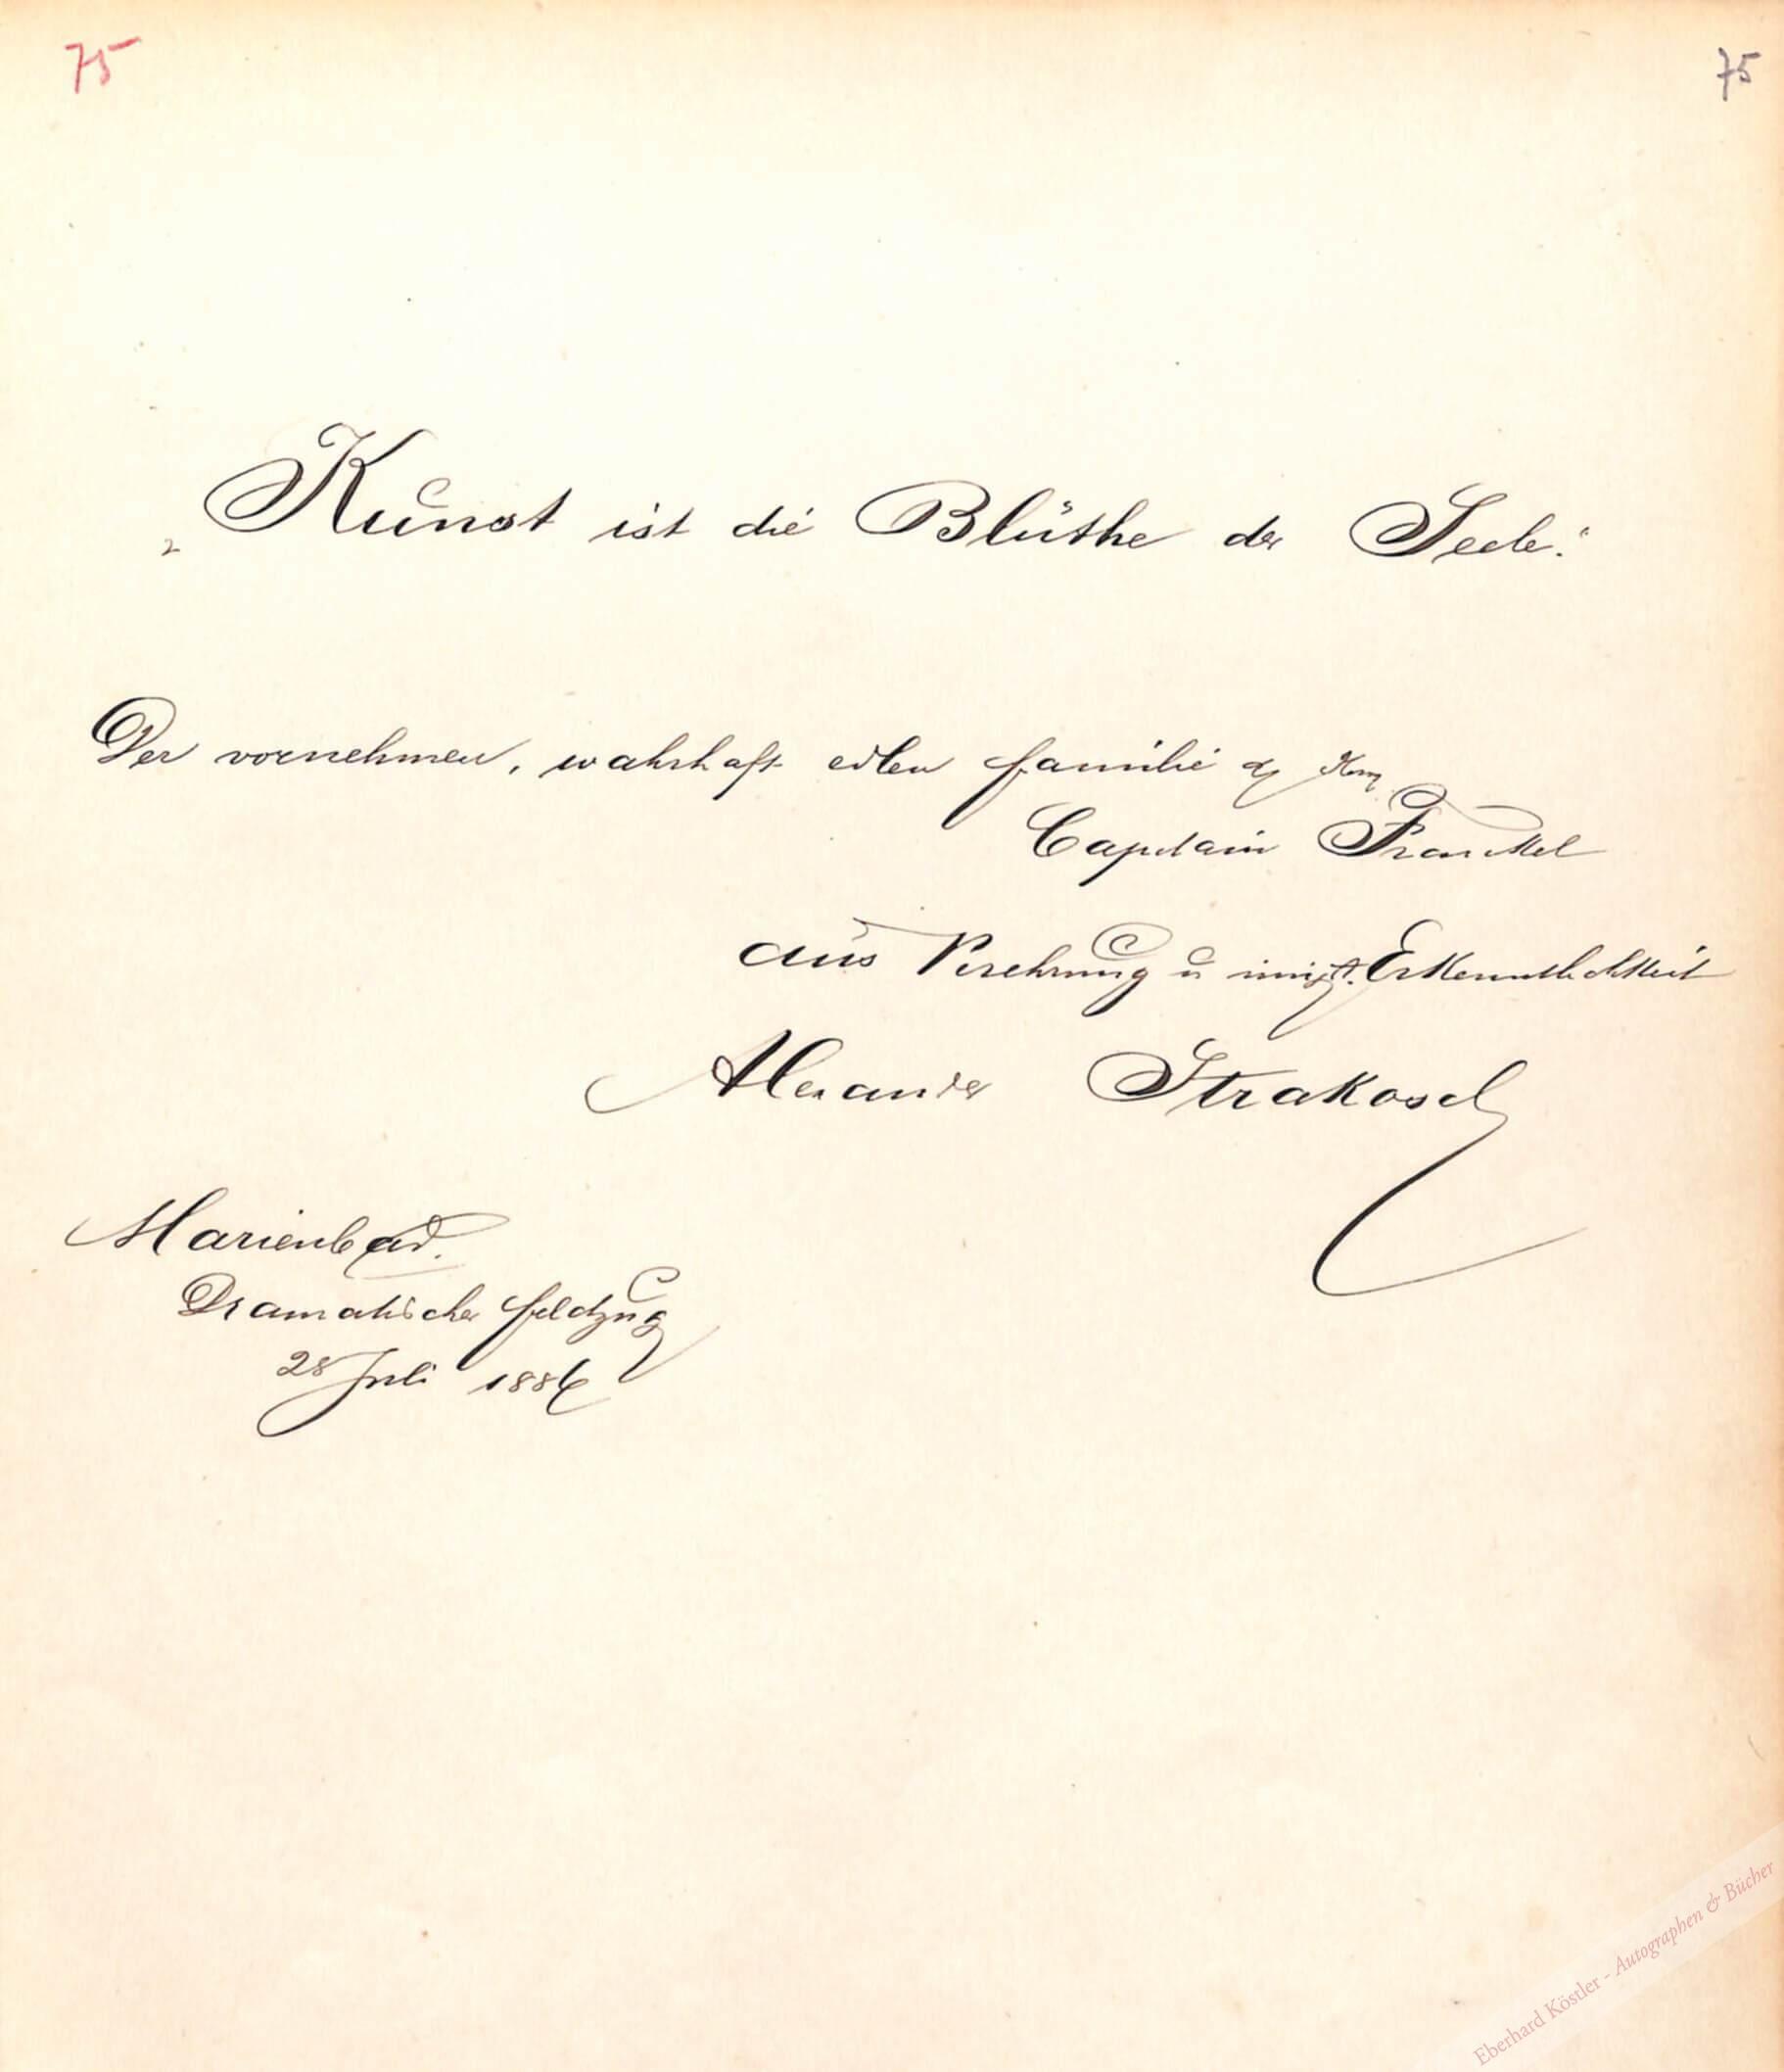 75
75
„Kunst ist die Blüthe der Seele.“
Der vornehmen, wahrhaft edlen Familie d Herrn
Capitain Franckel
aus Verehrung u innigst. Erkenntlichkeit
Alexander Strakosch
Marienbad.
Dramatischer Feldzug
28 Juli 1886
Eberhard Köstler - Autographen & Bücher